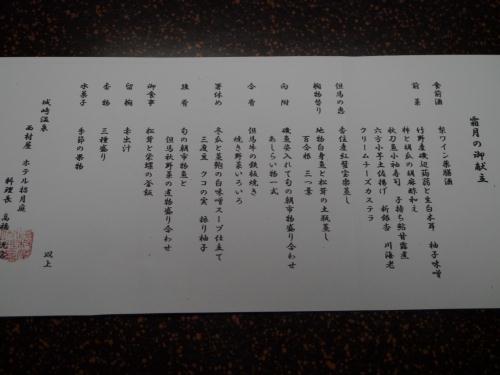 霜月の御献立
食前酒 梨ワイン薬膳酒
前菜 竹野産磯辺蒟蒻と生白木耳 柚子味噌
柿と胡瓜の胡麻酢和え
秋刀魚小袖寿司 子持ち鮎甘露煮
六方小芋土佐揚げ 新銀杏 川海老
クリームチーズカステラ
但馬の恵 香住産紅蟹宝楽蒸し
椀物替り 地物白身魚と松茸の土瓶蒸し
百合根 三つ葉
向附 磯魚姿入れて旬の朝市物盛り合わせ
あしらい物一式
合肴 但馬牛の鉄板焼き
焼き野菜いろいろ
箸休め 冬瓜と蒸鮑の白味噌スープ仕立て
三度豆 クコの実 振り柚子
強肴 旬の朝市物魚と
但馬秋野菜の煮物盛り合わせ
御食事 松茸と栄螺の釜飯
留椀 赤出汁
香物 三種盛り
水菓子 季節の果物
以上
城崎温泉
西村屋 ホテル招月庭
料理長 高橋